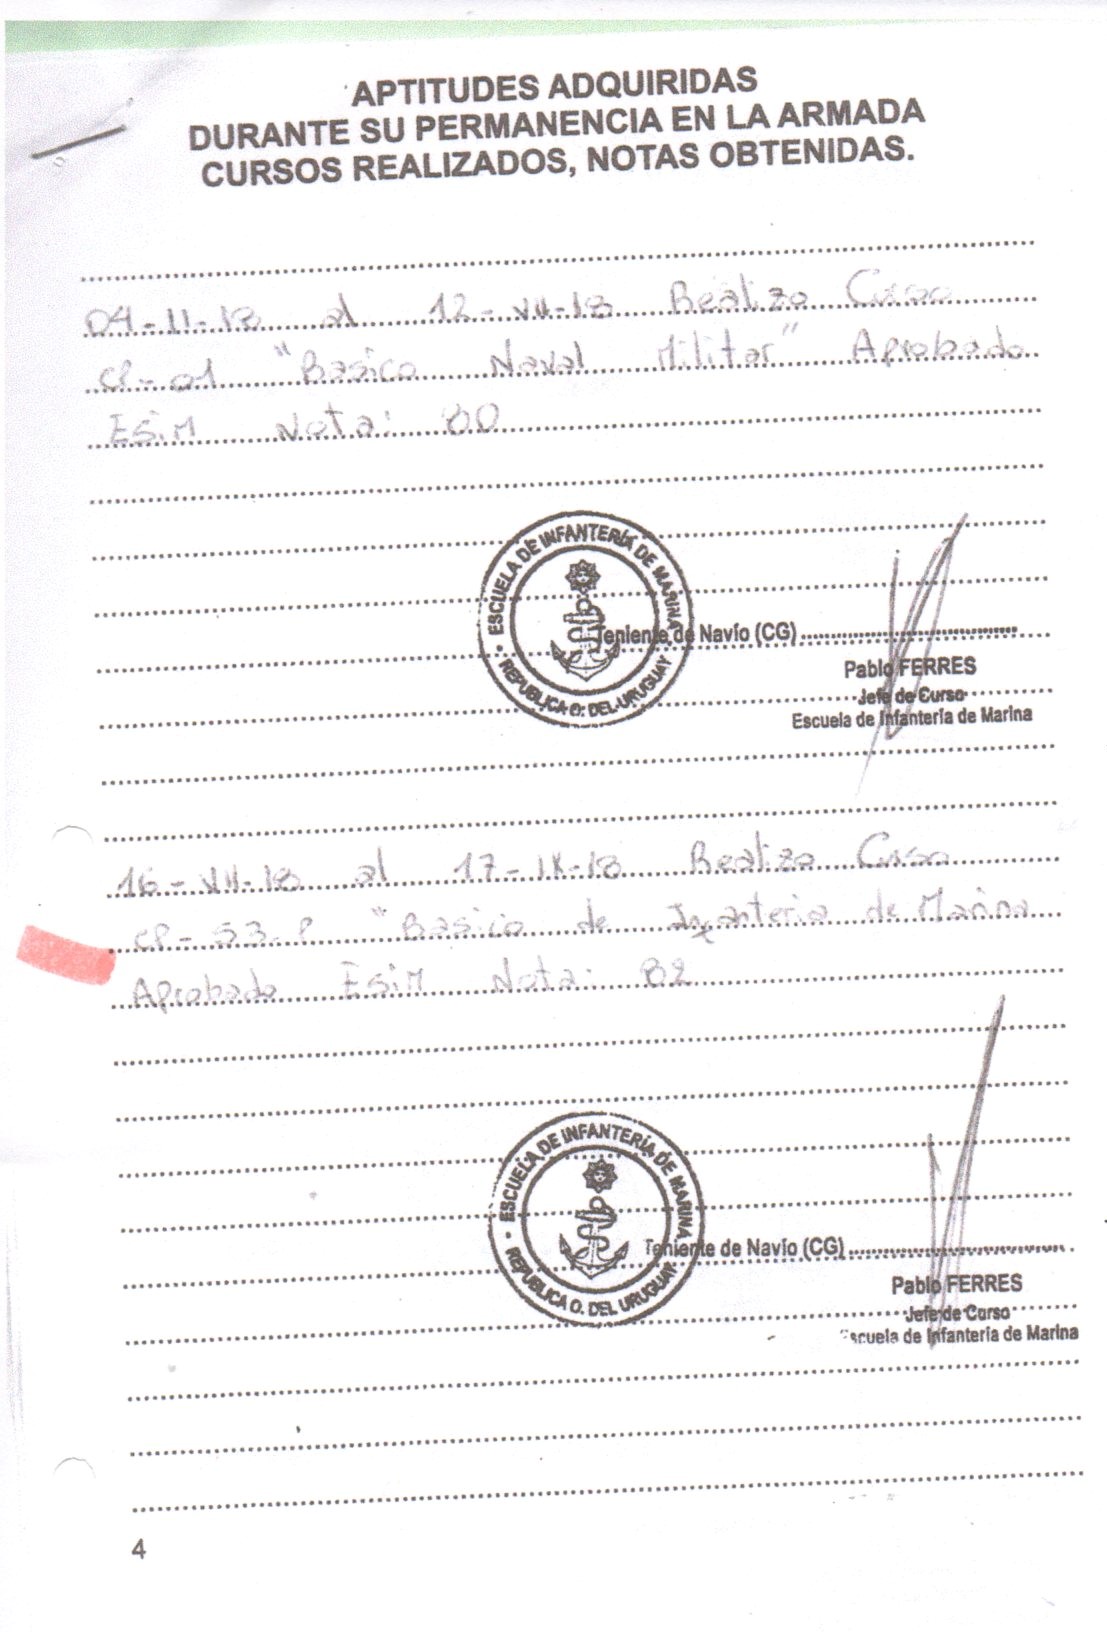 APTITUDES ADQUIRIDAS
DURANTE SU PERMANENCIA EN LA ARMADA
CURSOS REALIZADOS, NOTAS OBTENIDAS.
04-II-18 al 12-VII-18 Realizo Curso
CP-01 "Basico Naval Militar" Aprobado
Esim Nota: 80
ESCUELA DE INFANTERÍA DE MARINA
REPUBLICA O. DEL URUGUAY
Teniente de Navío (CG)
Pablo FERRES
Jefe de Curso
Escuela de Infantería de Marina
16-VII-18 al 17-IX-18 Realizo Curso
CP-53-P "Basico de Infanteria de Marina
Aprobado Esim Nota: 82
ESCUELA DE INFANTERÍA DE MARINA
REPUBLICA O. DEL URUGUAY
Teniente de Navío (CG)
Pablo FERRES
Jefe de Curso
Escuela de Infantería de Marina
4